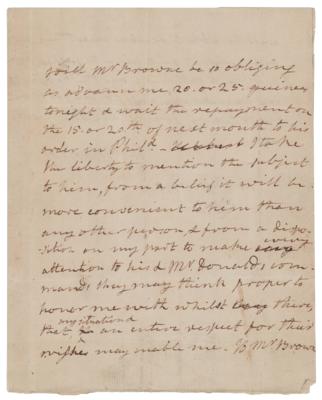 Will Mr Browne be so obliging
as advance me 20. or 25. guineas
tonight & wait the repayment on
the 15. or 20th of next month to his
order in Phild. I take
the liberty to mention the subject
to him, from a belief it will be
more convenient to him than
any other person, & from a dispo-
sition on my part to make every
attention to his & Mr. Donald's com-
mands they may think proper to
honor me with whilst there,
that my situation &
an entire respect for their
wishes may enable me. B Mr Browne